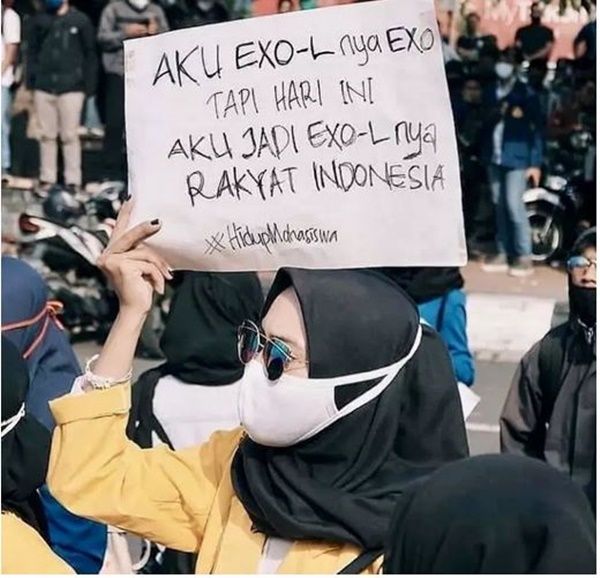 AKU EXO-L nya EXO
TAPI HARI INI
AKU JADI EXO-L nya
RAKYAT INDONESIA
#HidupMahasiswa